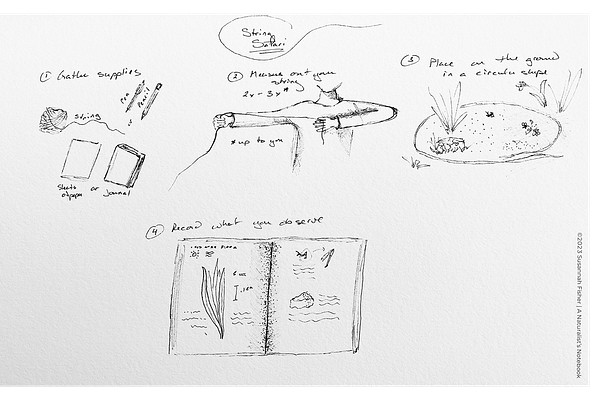 String
Safari
① Gather supplies
string
Pen
or
Pencil
Sheets
of paper
or
Journal
② Measure out your
string
2x - 3x*
*up to you
③ Place on the ground
in a circular shape
④ Record what you observe
©2023 Susannah Fisher | A Naturalist's Notebook